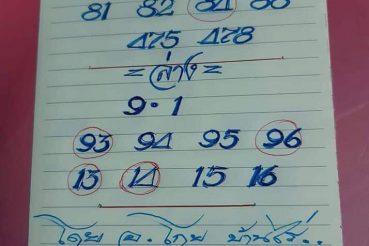 81 82 84 86
475 478
=ล่าง=
9·1
93 94 95 96
13 14 15 16
โดย อ.โกย บ้านไร่..